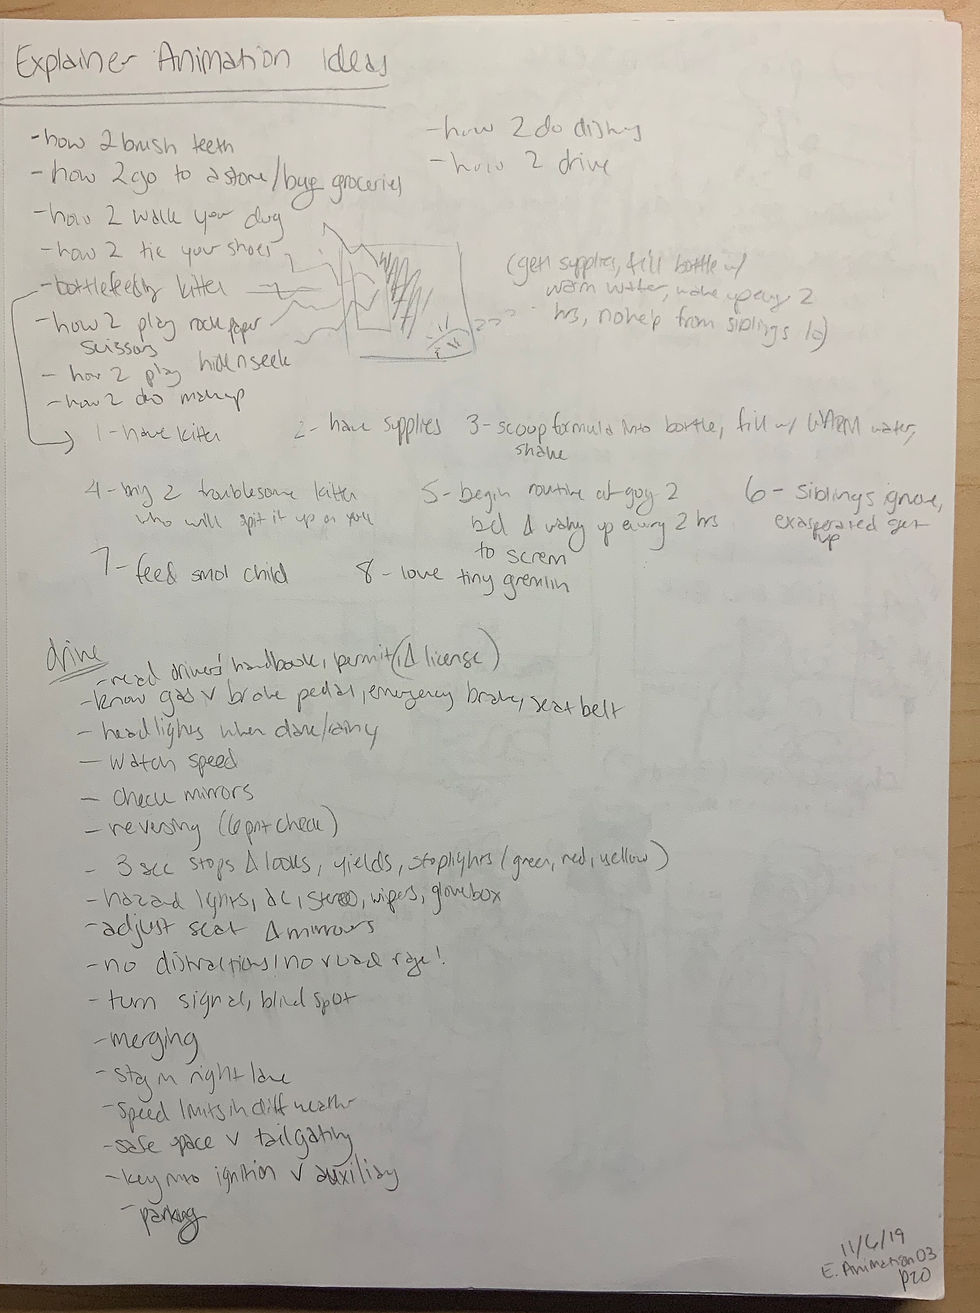 Explainer Animation Ideas
-how 2 brush teeth
-how 2 go to a store/buy groceries
-how 2 walk your dog
-how 2 tie your shoes
-bottlefeeding kitten
-how 2 play rock paper
scissors
-how 2 play hide n seek
-how 2 do makeup
-how 2 do dishes
-how 2 drive
(get supplies, fill bottle w/
warm water, wake up every 2
hrs, no help from siblings lol)
1-have kitten
2-have supplies
3-scoop formula into bottle, fill w/ WARM water,
shake
4-bring 2 troublesome kitten
who will spit it up on you
5-begin routine of going 2
bed & waking up every 2 hrs
to screm
6-siblings ignore,
exasperated get
up
7-feed smol child
8-love tiny gremlin
drive
-read drivers' handbook, permit (& license)
-know gas v brake pedal, emergency brake, seat belt
-headlights when dark/rainy
-watch speed
-check mirrors
-reversing (6 pnt check)
-3 sec stops & looks, yields, stoplights (green, red, yellow)
-hazard lights, ac, stereo, wipers, glovebox
-adjust seat & mirrors
-no distractions! no road rage!
-turn signal, blind spot
-merging
-stay in right lane
-speed limits in diff weather
-safe space v tailgating
-key into ignition v auxiliary
-parking
11/6/19
E. Animation 03
p20